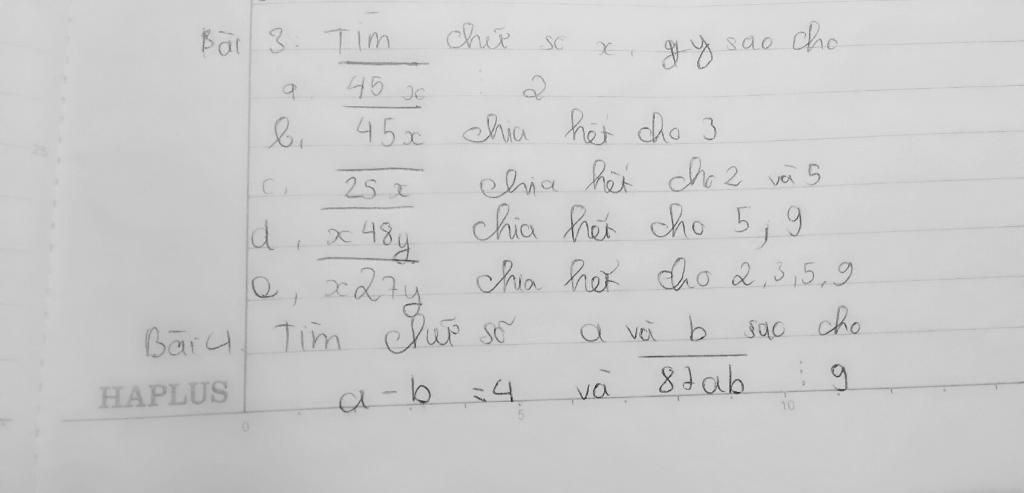 Bài 3: Tìm chữ số x, y sao cho
a. 45x ⋮ 2
b, 45x chia hết cho 3
c, 25x chia hết cho 2 và 5
d, x48y chia hết cho 5, 9
e, x27y chia hết cho 2,3,5,9
Bài 4 Tìm chữ số a và b sao cho
a - b = 4 và 87ab ⋮ 9
HAPLUS
0 5 10